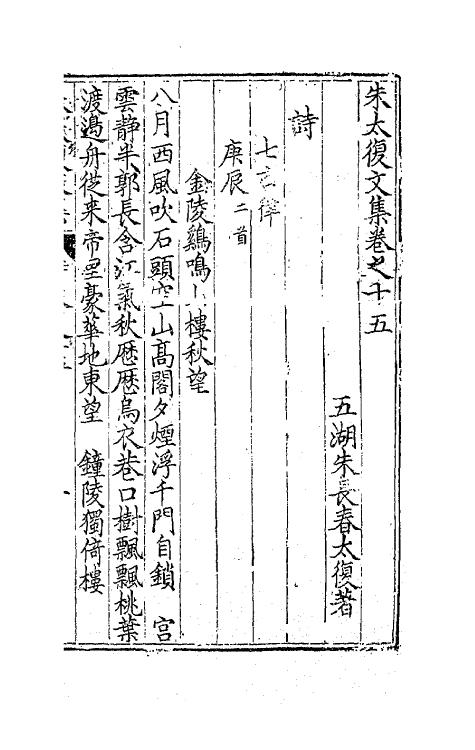 朱太復文集卷之十五
五湖朱長春太復著
詩
七言律
庚辰二首
金陵鷄鳴山樓秋望
八月西風吹石頭空山高閣夕煙浮千門自鎖 宮
雲靜半郭長含江氣秋歷歷烏衣巷口樹飄飄桃葉
渡邊舟從来帝里豪華地東望 鐘陵獨倚樓